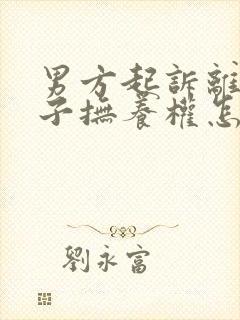 男方起訴離
子撫養權怎
劉永富